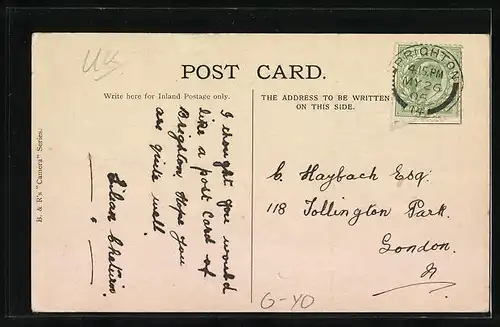 UK
POST CARD.
Write here for Inland Postage only.
THE ADDRESS TO BE WRITTEN
ON THIS SIDE.
BRIGHTON
4.15.PM
MY 26
B. & R's "Camera" Series.
I thought you would
like a post card of
Brighton Hope you
are quite well.
C. Haybach Esq.
118 Tollington Park.
London.
N
G-YO